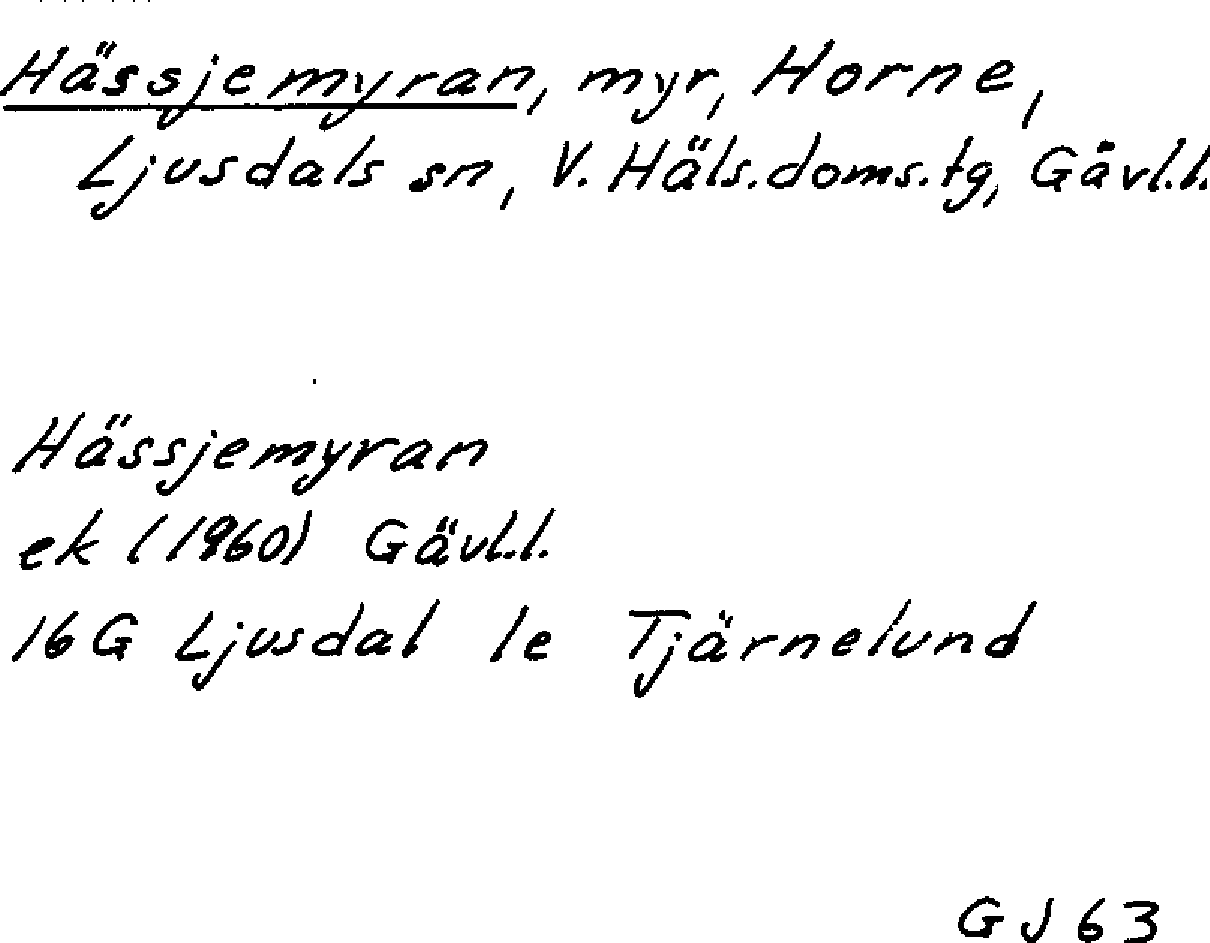 Hässjemyran, myr, Horne,
Ljusdals sn, V. Häls.doms.tg, Gävl.l.
Hässjemyran
ek (1960) Gävl.l.
16 G Ljusdal 1e Tjärnelund
GJ 63